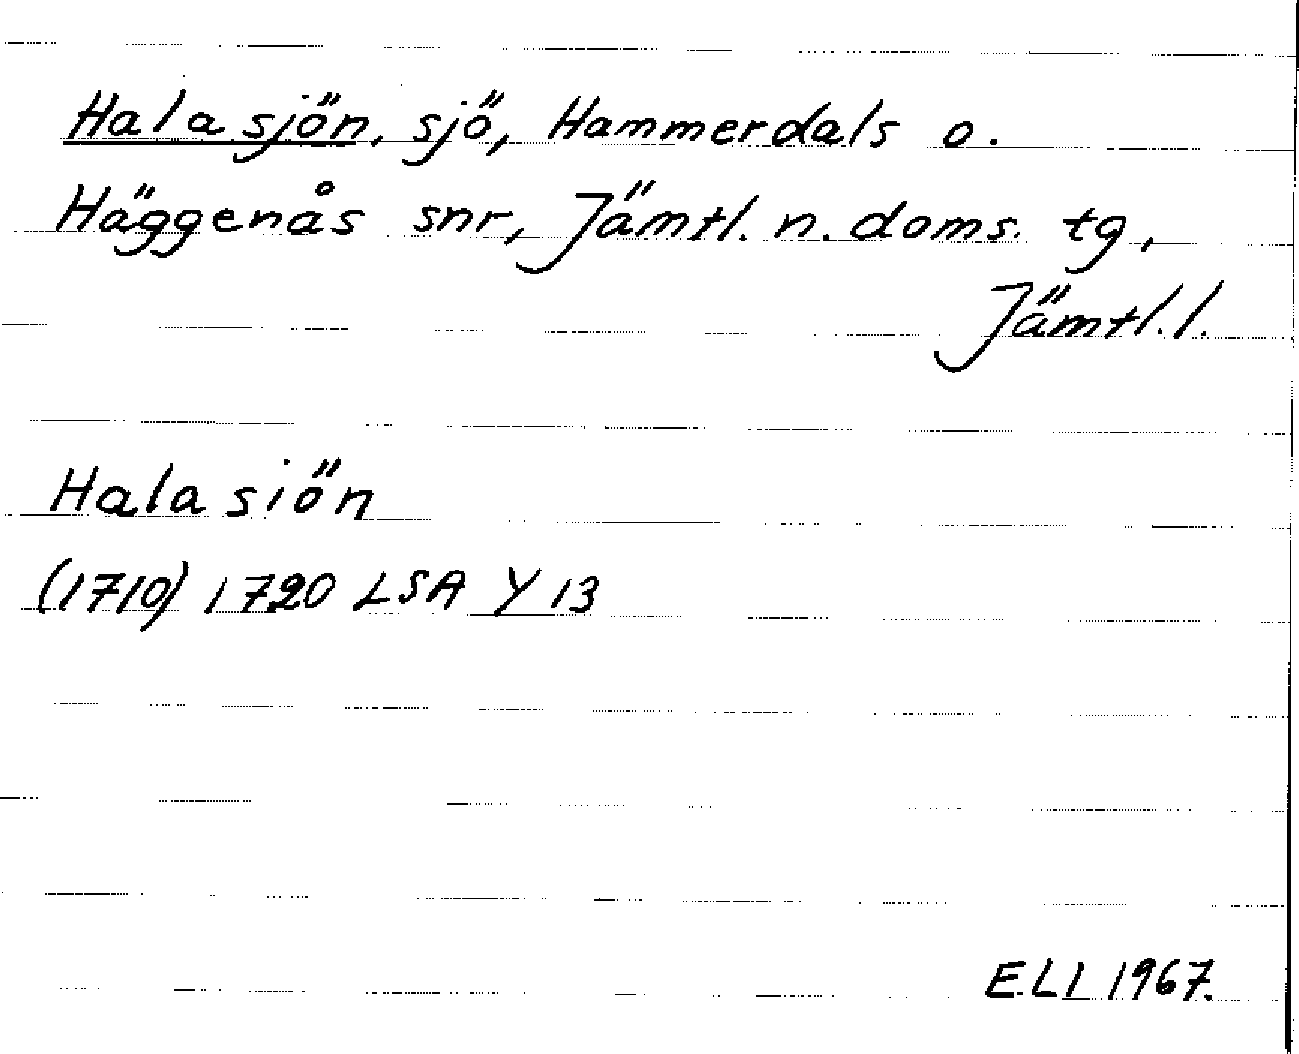 Halasjön, sjö, Hammerdals o.
Häggenås snr, Jämtl. n. doms. tg,
Jämtl. l.
Hala siön
(1710) 1720 LSA Y 13
ELI 1967.